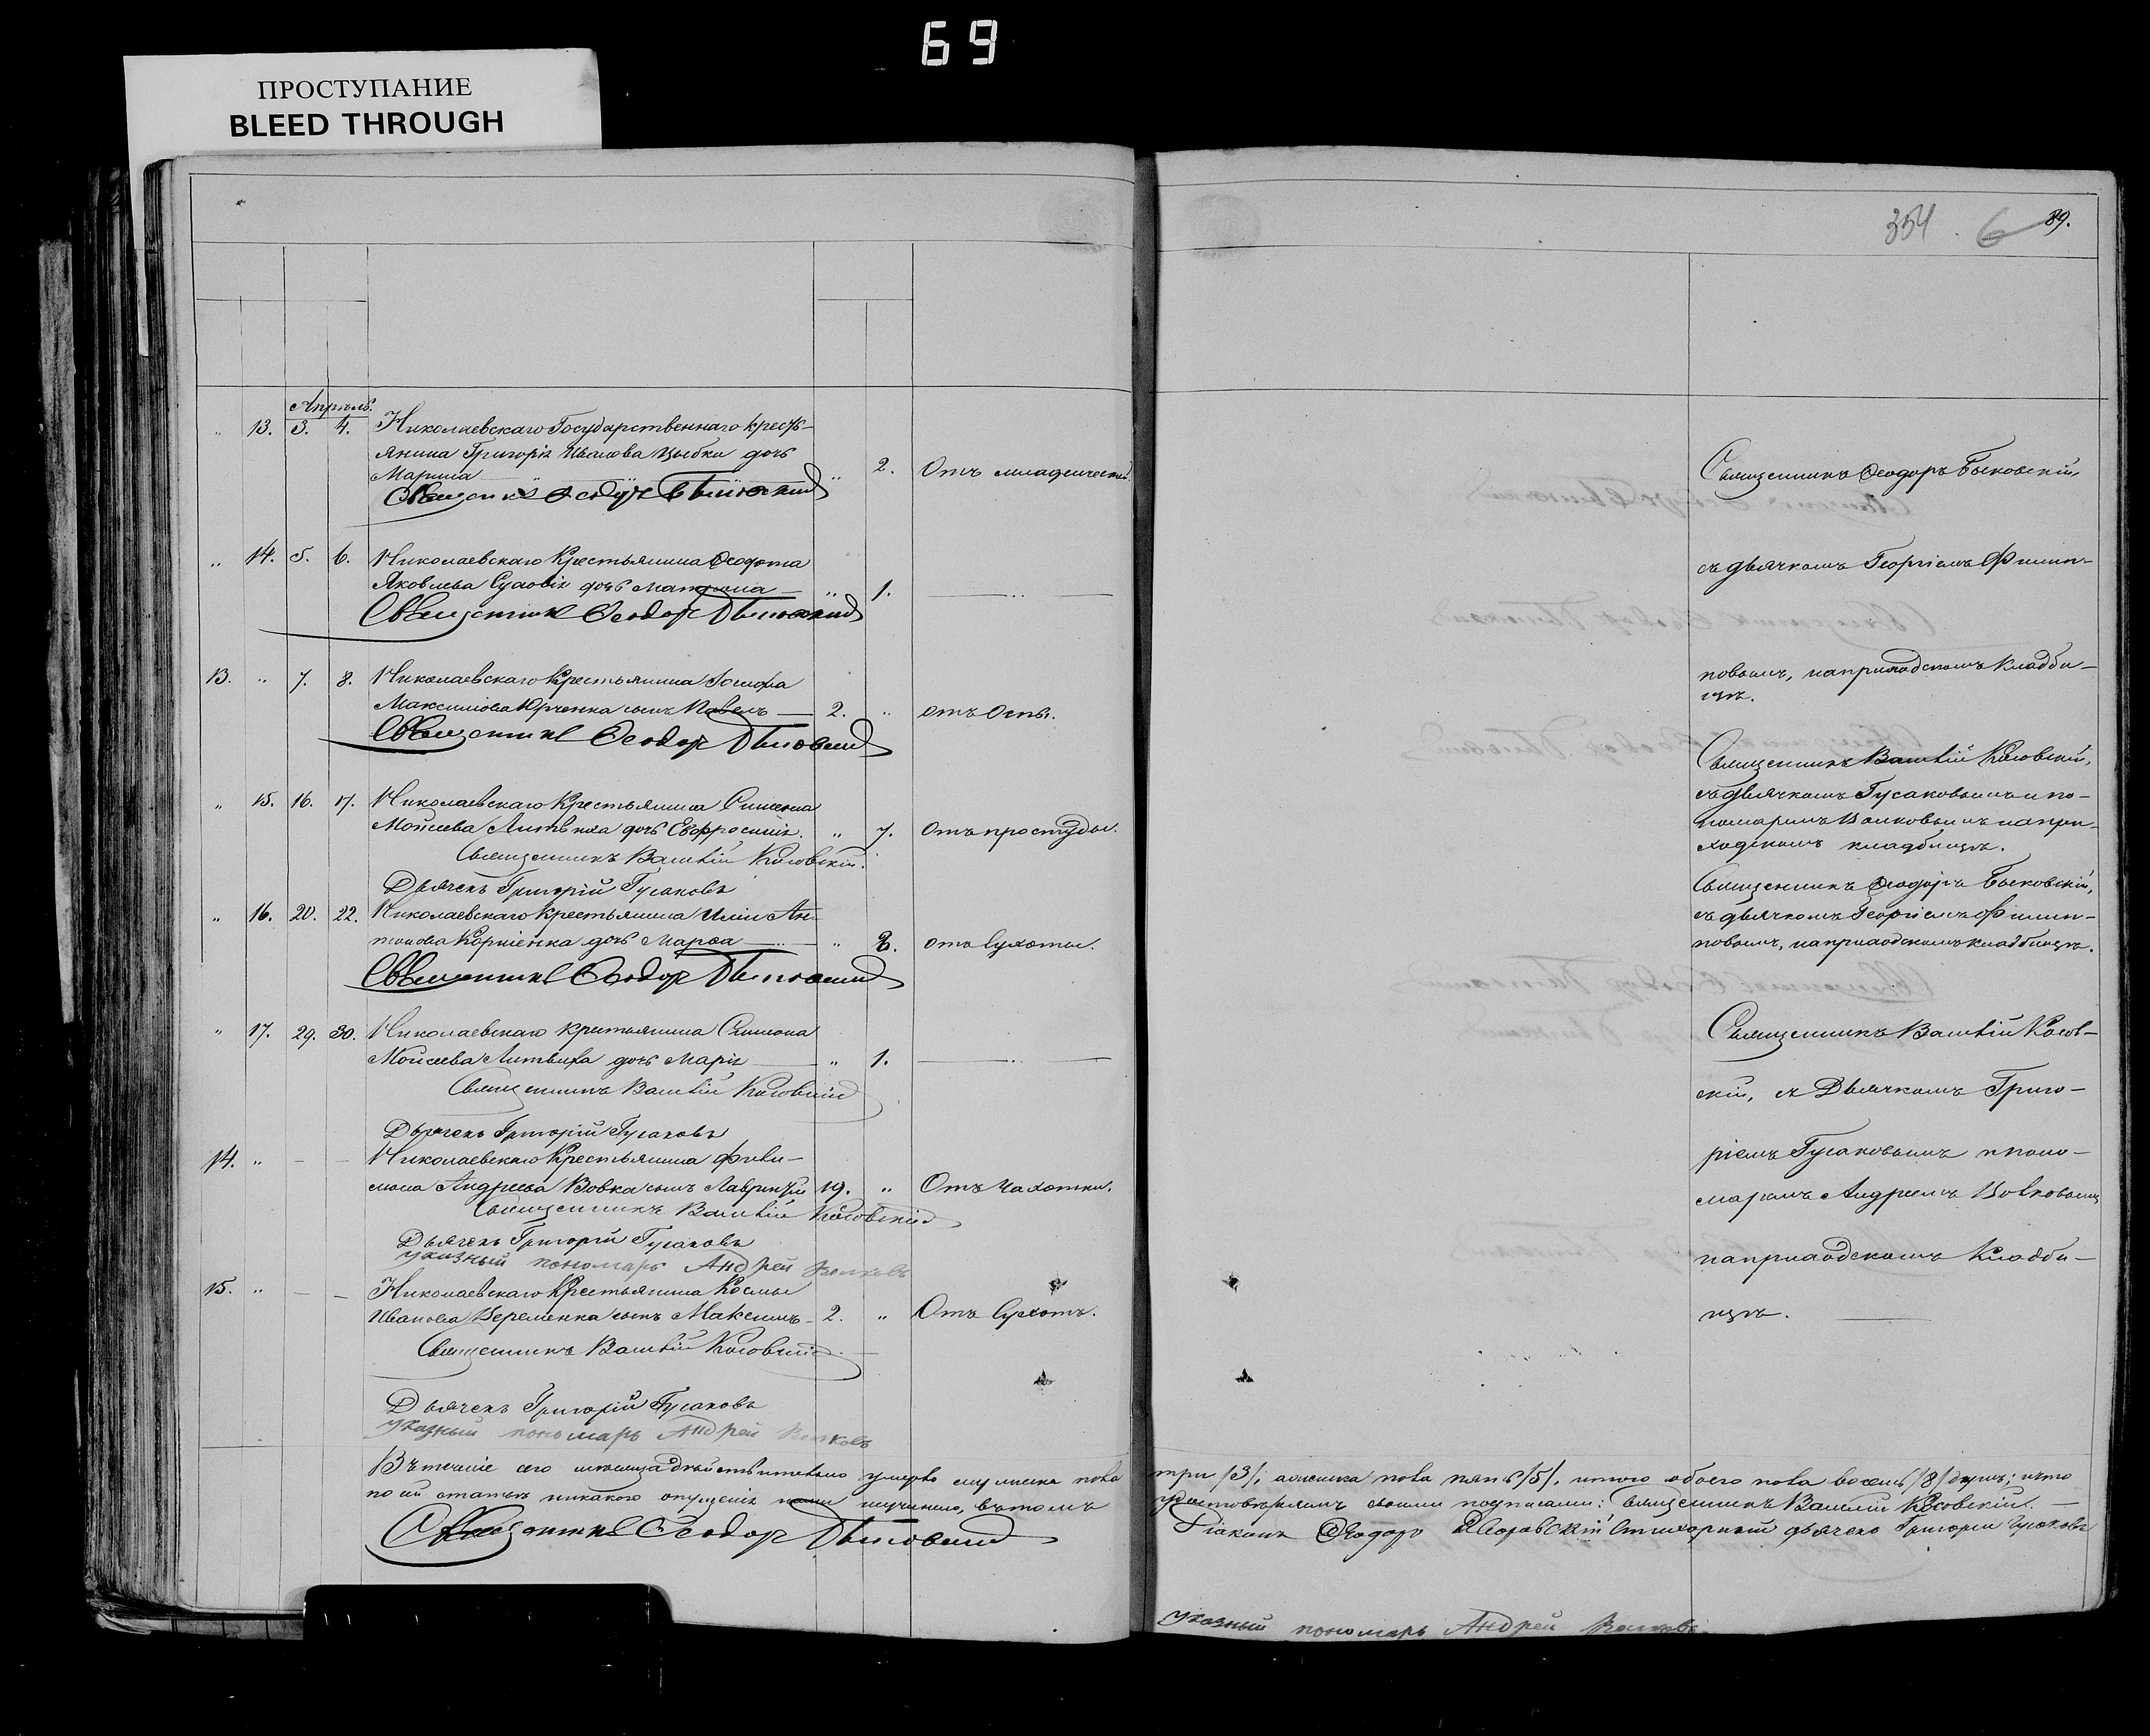 69
ПРОСТУПАНИЕ
BLEED THROUGH
354 6 89.
Апрѣль.
„ 13. 3. 4. Николаевскаго Государственнаго кресть-
янина Григорія Иванова Цыбки дочь
Марина „ 2. Отъ младенческой.
Священникъ Ѳеодоръ Быковскій
„ 14. 5. 6. Николаевскаго Крестьянина Ѳеодота
Яковлева дочь Матрона „ 1. — „ —
Священникъ Ѳеодоръ Быковскій
13. „ 7. 8. Николаевскаго Крестьянина Іосифа
Максимова Юрченка сынъ Павелъ 2. „ отъ Оспы.
Священникъ Ѳеодоръ Быковскій
„ 15. 16. 17. Николаевскаго Крестьянина Симеона
Мойсеева дочь Евфросинія. „ 7. Отъ простуды.
Священникъ Василій Косовскій.
Дьячекъ Григорій Гусаковъ
„ 16. 20. 22. Николаевскаго крестьянина Иліи Ан-
тонова Корніенка дочь Марѳа „ отъ Сухоты.
Священникъ Ѳеодоръ Быковскій
„ 17. 29. 30. Николаевскаго крестьянина Симеона
Мойсеева дочь Марія „ 1. — „ —
Священникъ Василій Косовскій
Дьячекъ Григорій Гусаковъ
14. „ — — Николаевскаго Крестьянина Фили-
мона Андреева Вовка сынъ Лаврентій 19. „ Отъ Чахотки.
Священникъ Василій Косовскій
Дьячекъ Григорій Гусаковъ
указный пономарь Андрей Волковъ
15. „ — — Николаевскаго Крестьянина Космы
Иванова сынъ Максимъ 2. „ Отъ Сухоты.
Священникъ Василій Косовскій
Дьячекъ Григорій Гусаковъ
Указный пономарь Андрей Волковъ
Въ теченіе сего мѣсяца дѣйствительно умерло мужеска пола
по сей статьѣ никакого опущенія не учинено, въ томъ
Священникъ Ѳеодоръ Быковскій
Священникъ Ѳеодоръ Быковскій,
съ дьячкомъ Георгіемъ Филип-
повымъ, на приходскомъ кладби-
щѣ.
Священникъ Василій Косовскій,
съ дьячкомъ Гусаковымъ и по-
номаремъ Волковымъ на при-
ходскомъ кладбищѣ.
Священникъ Ѳеодоръ Быковскій,
съ дьячкомъ Георгіемъ Филип-
повымъ, на приходскомъ кладбищѣ.
Священникъ Василій Косов-
скій, съ Дьячкомъ Григо-
ріемъ Гусаковымъ и поно-
маремъ Андреемъ Волковымъ
на приходскомъ Кладби-
щѣ.
три /3/, а женска пола пять /5/. итого обоего пола восемь /8/ душъ; въ
удостовѣряемъ своими подписами: Священникъ Василій Косовскій. —
Діаконъ Ѳеодоръ Стихарный дьячекъ Григорій Гусаковъ
Указный пономарь Андрей Волковъ